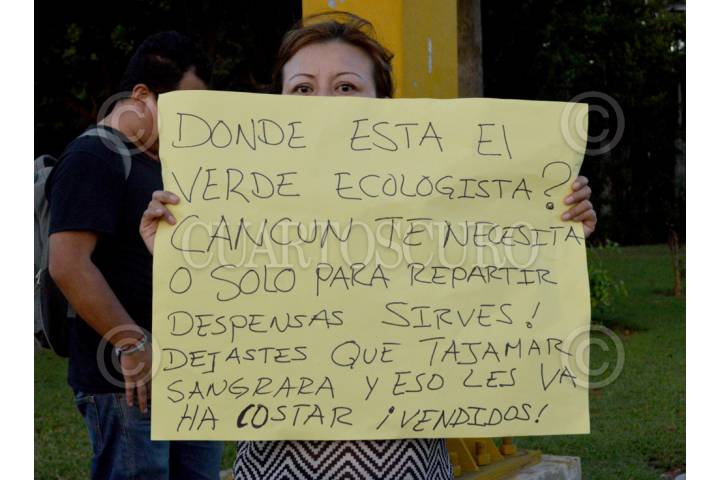 DONDE ESTA El
VERDE ECOLOGISTA?
CANCUN TE NECESITA
O SOLO PARA REPARTIR
DESPENSAS SIRVES!
DEJASTES QUE TAJAMAR
SANGRARA Y ESO LES VA
HA COSTAR ¡VENDIDOS!
CUARTOSCURO